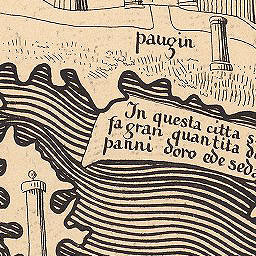 paugin
In questa citta s
fa gran quantita d
panni doro ede seda